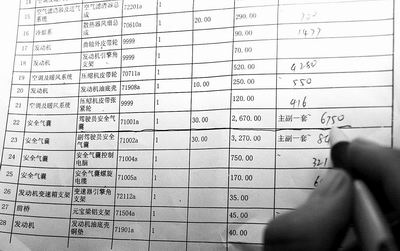 系统 空气滤清器总成 72201a 1 290.00
16 冷却系 散热器风扇总成 70610a 1 20.00 90.00 1477
17 发动机 曲轴外皮带轮 9999 1 70.00
18 发动机 发动机引擎角支架 9999 1 520.00 4250
19 空调及暖风系统 压缩机皮带轮 70711a 1 250.00 550
20 发动机 发动机油底壳 71908a 1 10.00 120.00 416
21 空调及暖风系统 压缩机皮带张紧轮 9999 1
22 安全气囊 驾驶员安全气囊 71001a 1 30.00 2,670.00 主副一套 6750
23 安全气囊 副驾驶员安全气囊 71002a 1 30.00 3,270.00 主副一套
24 安全气囊 安全气囊控制电脑 71004a 1 750.00 321
25 安全气囊 安全气囊螺旋电缆 71005a 1 170.00
26 发动机变速箱支架 变速器引擎角支架 72112a 1 35.00
27 前桥 元宝梁铝支架 71504a 1 40.00
28 发动机 发动机油底壳铜垫 71901a 1 45.00